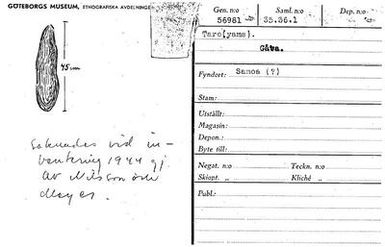 GÖTEBORGS MUSEUM, ETNOGRAFISKA AVDELNINGEN
45 cm
Saknades vid in-
ventering 1944 gj.
av Nilsson och
Meyer.
Gen. n:o 56981
Saml. n:o 35.36.1
Dep. n:o
Taro(yams).
Gåva.
Fyndort: Samoa (?)
Stam:
Utställt:
Magasin:
Depon.:
Byte till:
Negat. n:o
Teckn. n:o
Skiopt. „
Kliché „
Publ.: